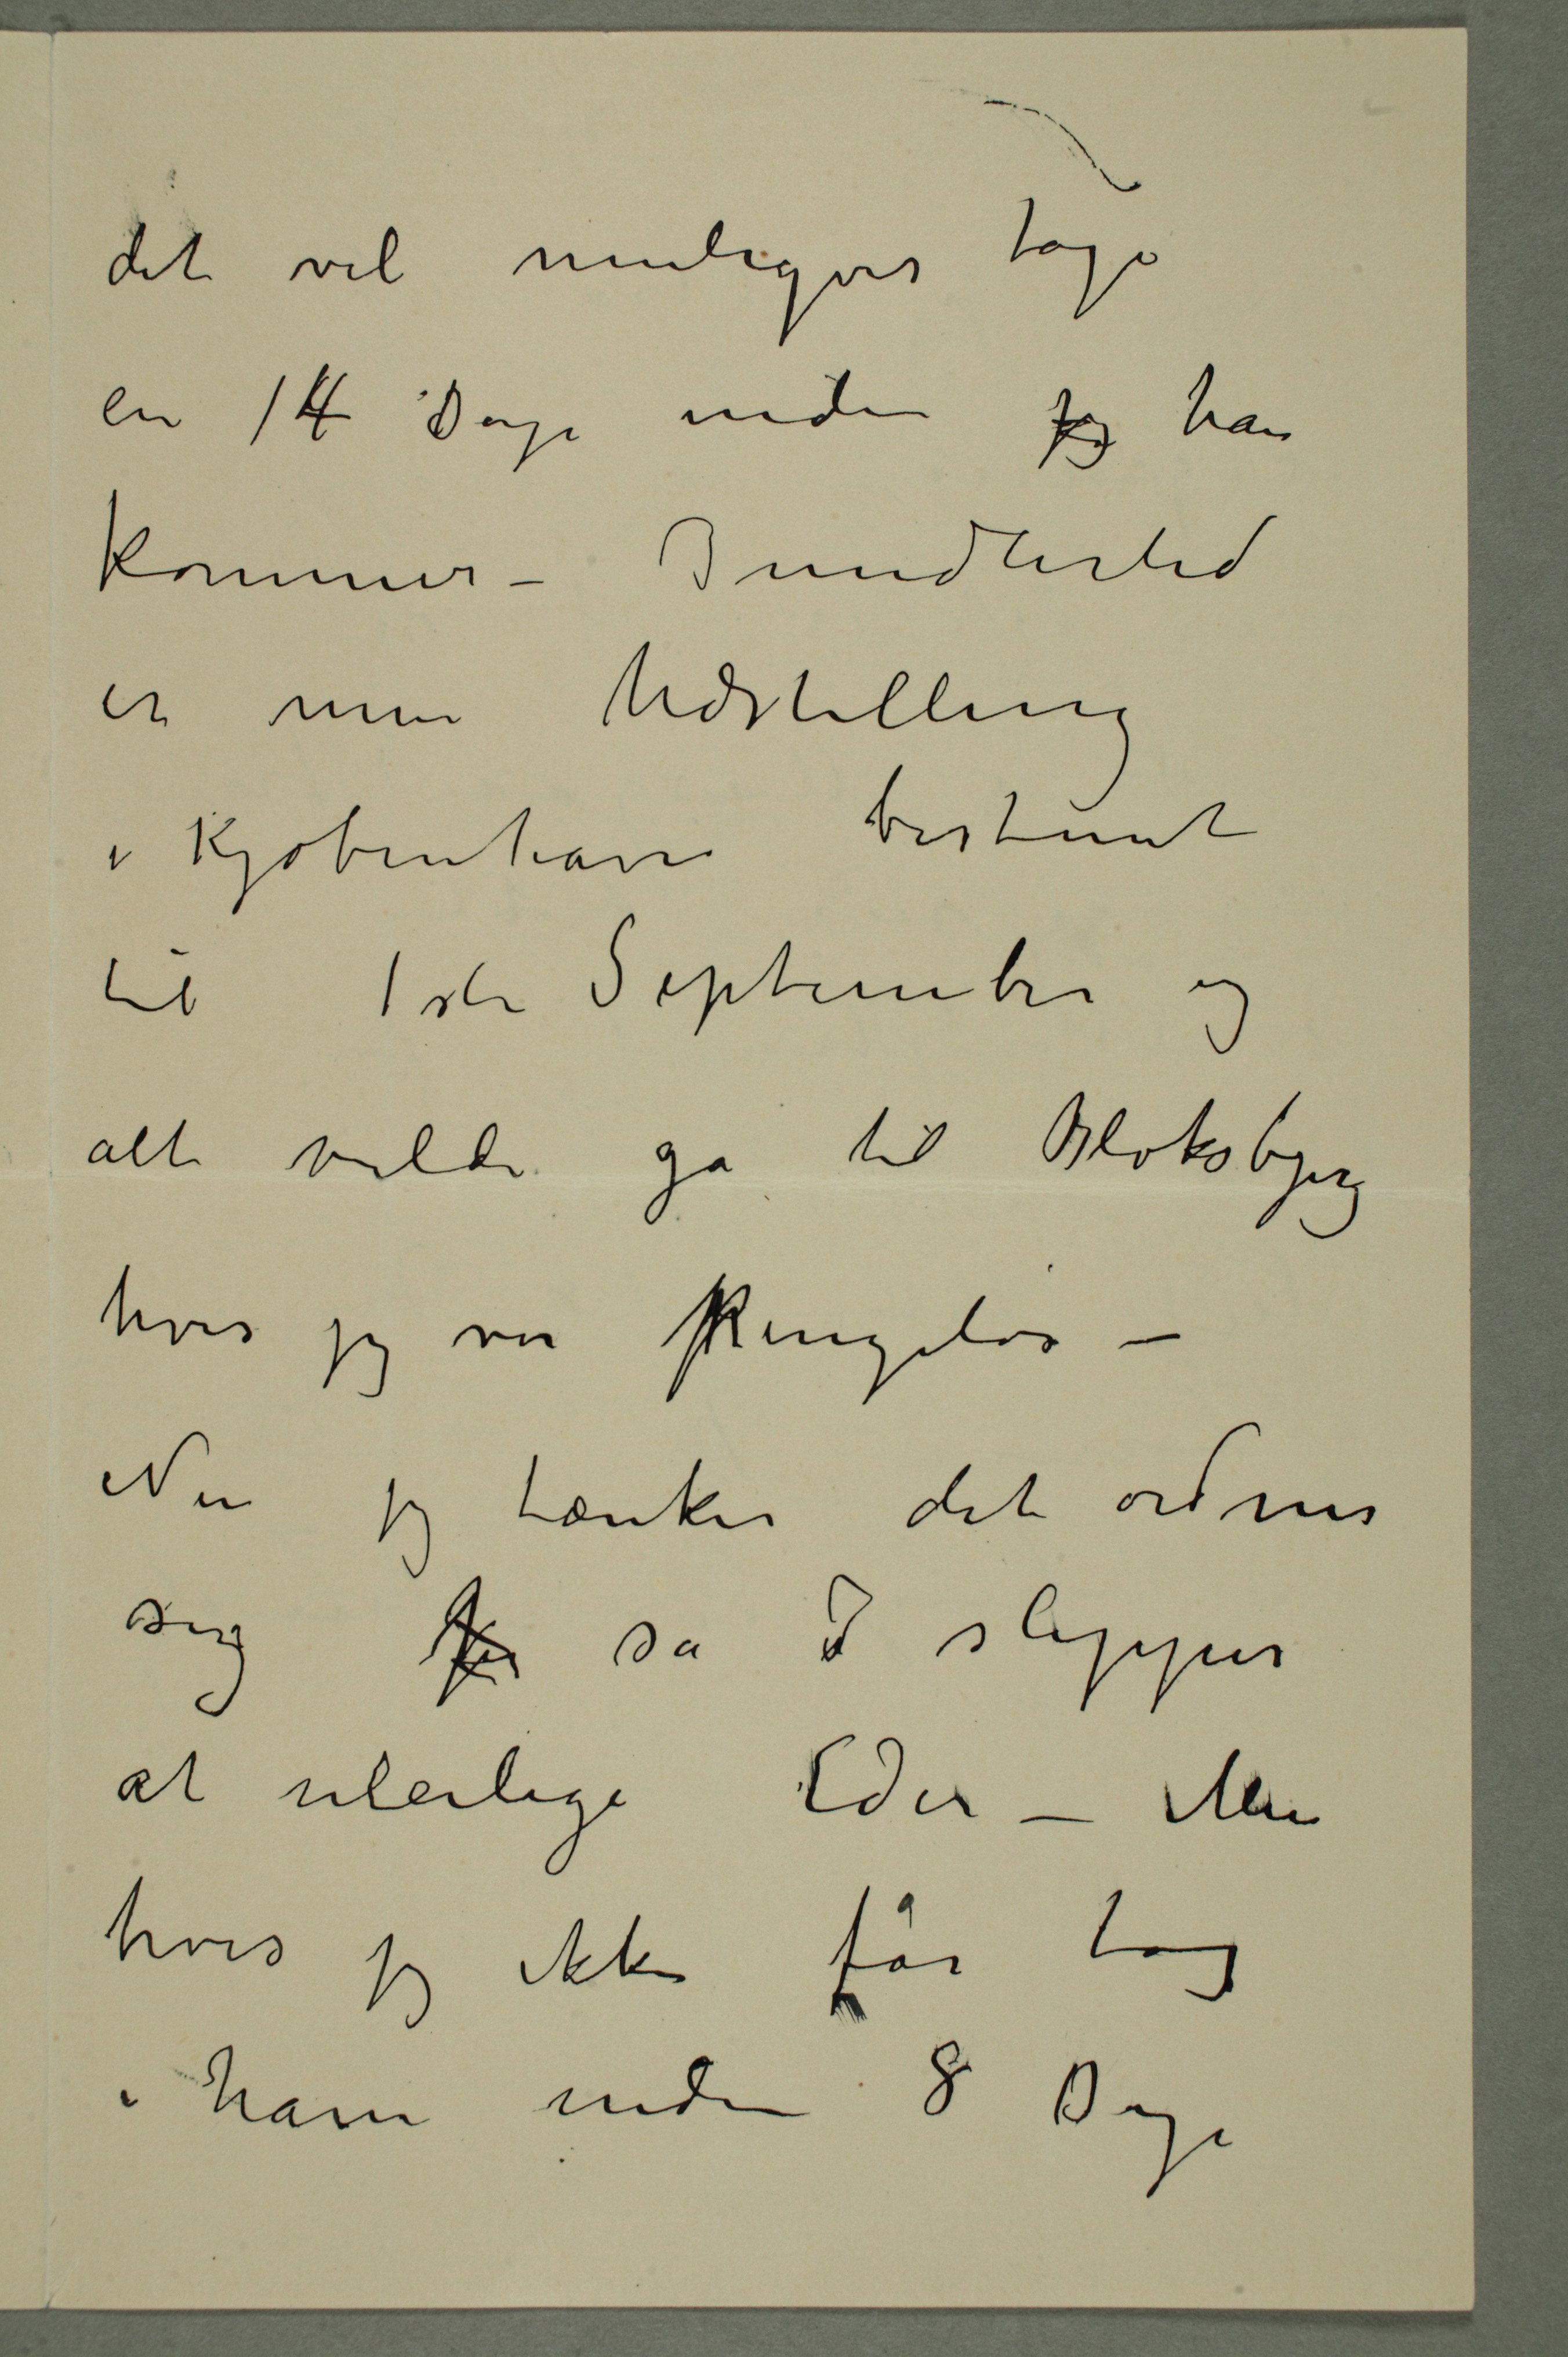 det vil muligvis tage
en 14 Dage inden jeg han
kommer – Imidlertid
er min Udstilling
i Kjøbenhavn bestemt
til 1ste September og
alt vilde gå til Bloksbjerg
hvis jeg var Pengeløs –
Nu jeg tænker det ordner
sig så I slipper
at uleilige Eder – Men
hvis jeg ikke får tag
i ham inden 8 Dage